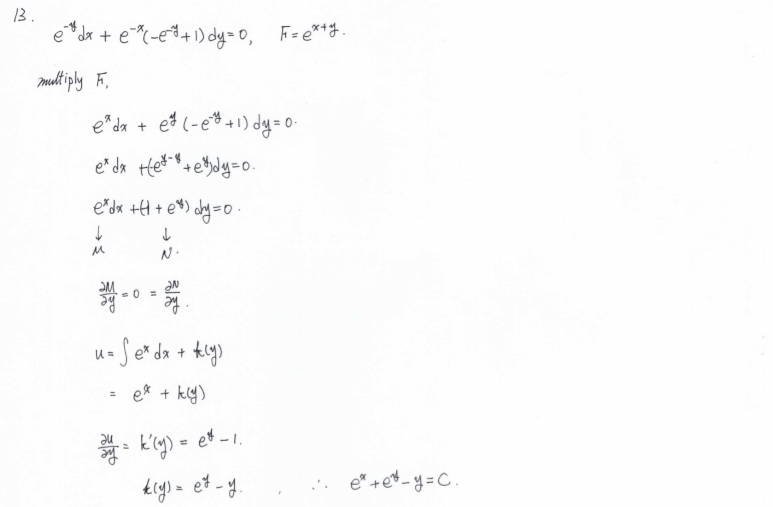 13.
e^{-y}dx + e^{-x}(-e^{-y}+1)dy=0, F=e^{x+y}.
multiply F,
e^x dx + e^y (-e^{-y}+1) dy=0.
e^x dx +(-e^{y-y}+e^y)dy=0.
e^x dx +(-1+e^y) dy=0.
↓ ↓
M N.
∂M/∂y = 0 = ∂N/∂y.
u = ∫ e^x dx + k(y)
= e^x + k(y)
∂u/∂y = k'(y) = e^y - 1.
k(y) = e^y - y. , ∴ e^x + e^y - y = C.